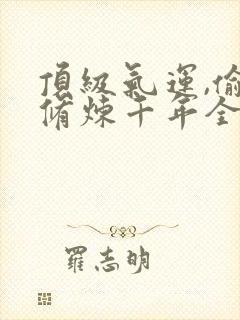 頂級氣運,偷
脩煉千年全
羅志明